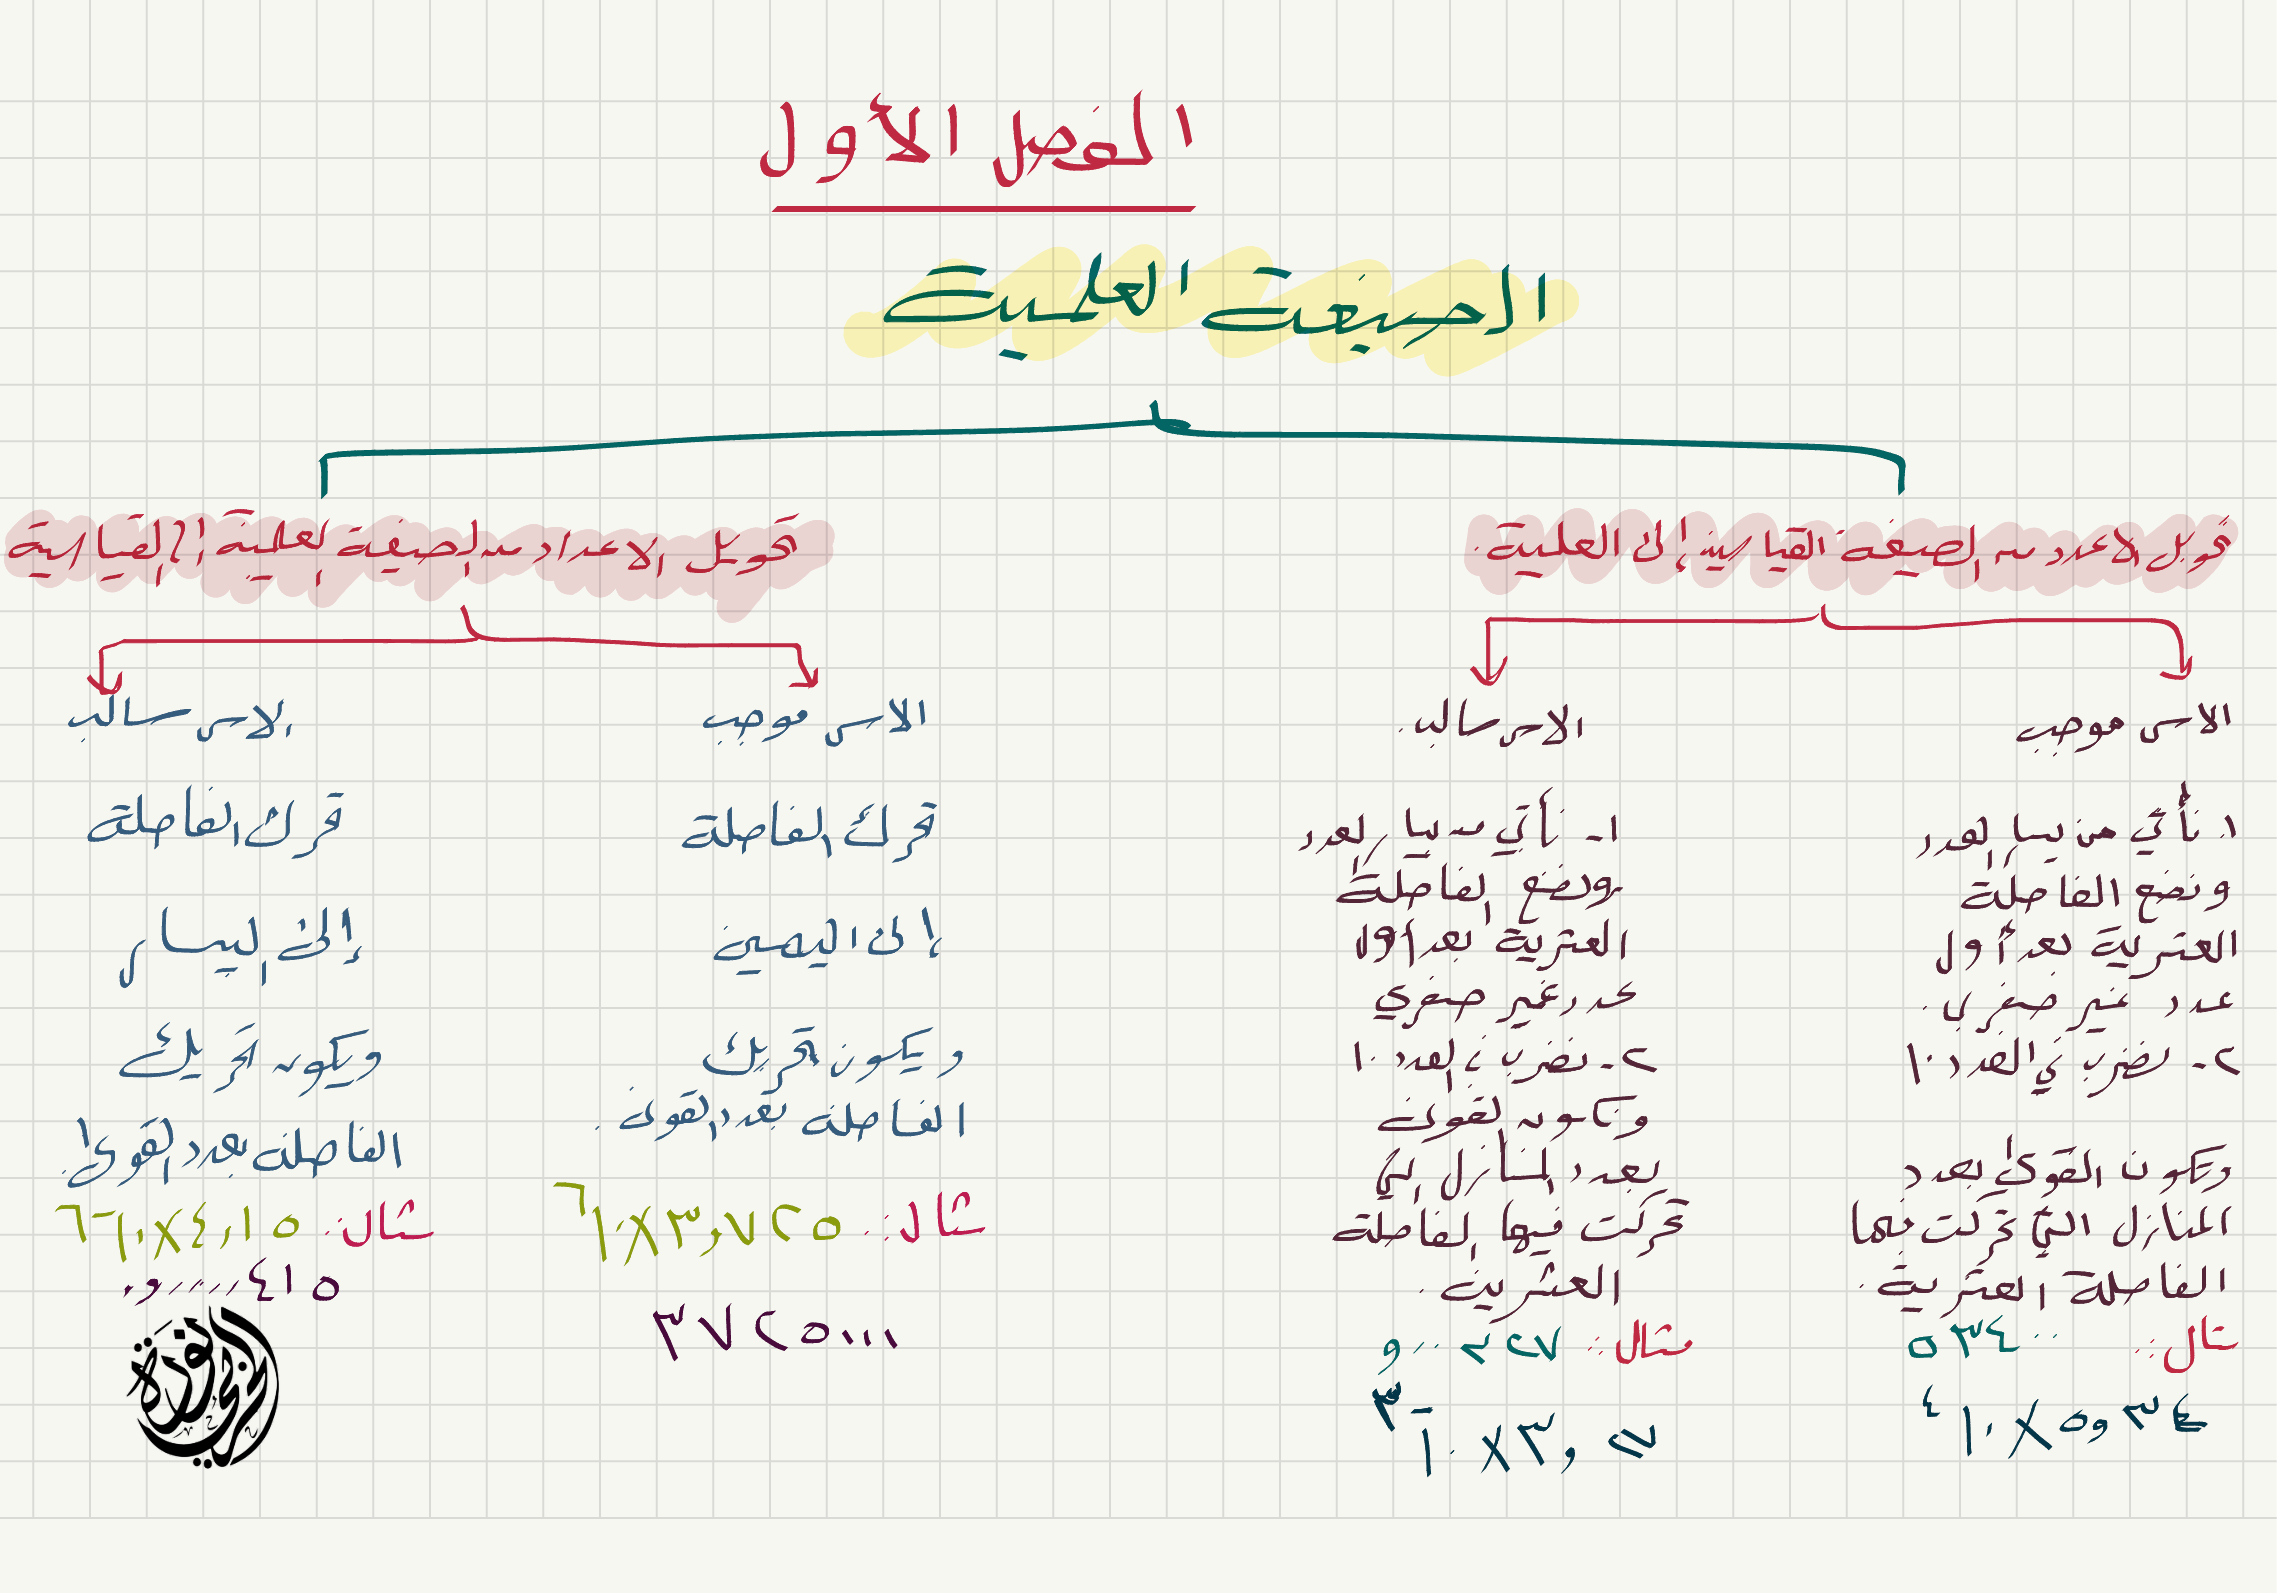 الفصل الأول
الصيغة العلمية
تحويل الاعدد من الصيغة القياسية إلى العلمية.
الاس موجب
١. نأتي من يسار العدد
ونضع الفاصلة
العشرية بعد أول
عدد غير صفري.
٢- نضرب في العدد ١٠
ويكون القوى بعدد
المنازل التي تحركت فيها
الفاصلة العشرية.
مثال:
٥٣٤٠٠
٥و٣٤ ×١٠ ٤
الاس سالب.
١- نأتي من يسار العدد
ونضع الفاصلة
العشرية بعد أول
عدد غير صفري
٢- نضرب في العدد ١٠
وتكون القوى
بعدد المنازل التي
تحركت فيها الفاصلة
العشرية.
مثال:
٣و٢٧ ×١٠ -٣
تحويل الاعداد من الصيغة العلمية الى القياسية
الاس موجب
تحرك الفاصلة
إلى اليمين
ويكون تحريك
الفاصلة بعدد القوى.
مثال: ٣و٧٢٥ ×١٠ ٦
٣٧٢٥٠٠٠
الاس سالب
تحرك الفاصلة
إلى اليسار
ويكون تحريك
الفاصلة بعدد القوى.
مثال: ٤,١٥ ×١٠ -٦